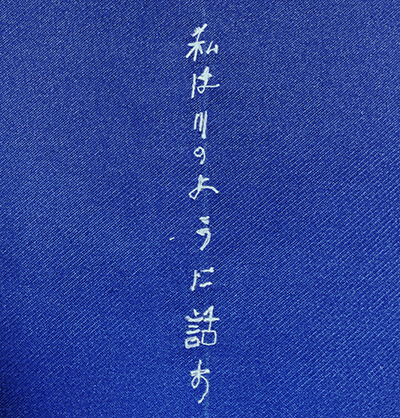 私は川のように話す